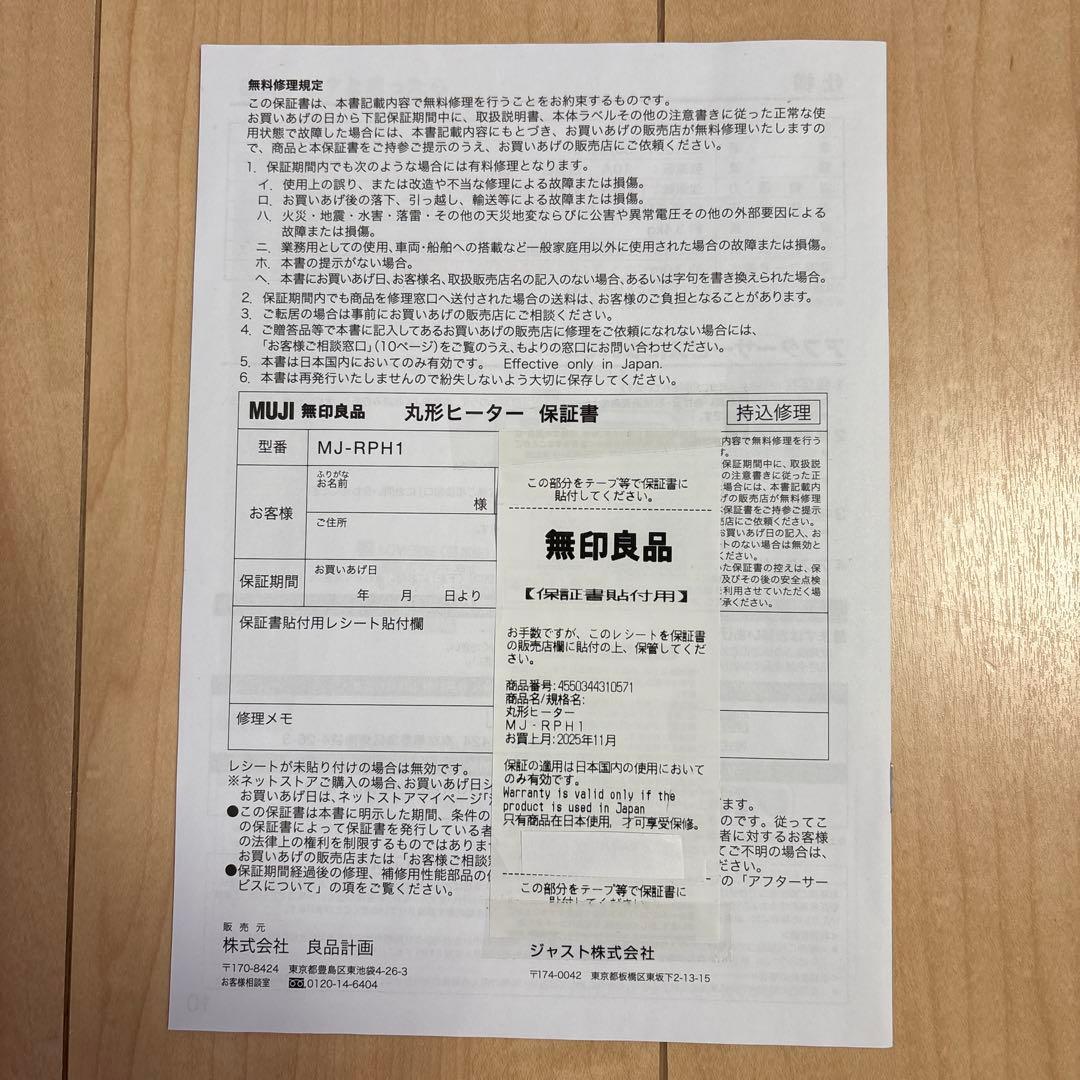 無料修理規定
この保証書は、本書記載内容で無料修理を行うことをお約束するものです。
お買いあげの日から下記保証期間中に、取扱説明書、本体ラベルその他の注意書きに従った正常な使
用状態で故障した場合には、本書記載内容にもとづき、お買いあげの販売店が無料修理いたしますの
で、商品と本保証書をご持参ご提示のうえ、お買いあげの販売店にご依頼ください。
1. 保証期間内でも次のような場合には有料修理となります。
イ. 使用上の誤り、または改造や不当な修理による故障または損傷。
ロ. お買いあげ後の落下、引っ越し、輸送等による故障または損傷。
ハ. 火災・地震・水害・落雷・その他の天災地変ならびに公害や異常電圧その他の外部要因による
故障または損傷。
ニ. 業務用としての使用、車両・船舶への搭載など一般家庭用以外に使用された場合の故障または損傷。
ホ. 本書の提示がない場合。
ヘ. 本書にお買いあげ日、お客様名、取扱販売店名の記入のない場合、あるいは字句を書き換えられた場合。
2. 保証期間内でも商品を修理窓口へ送付された場合の送料は、お客様のご負担となることがあります。
3. ご転居の場合は事前にお買いあげの販売店にご相談ください。
4. ご贈答品等で本書に記入してあるお買いあげの販売店に修理をご依頼になれない場合には、
「お客様ご相談窓口」(10ページ)をご覧のうえ、もよりの窓口にお問い合わせください。
5. 本書は日本国内においてのみ有効です。 Effective only in Japan.
6. 本書は再発行いたしませんので紛失しないよう大切に保存してください。
MUJI 無印良品 丸形ヒーター 保証書 持込修理
型番 MJ-RPH1
お客様
ふりがな
お名前
様
ご住所
保証期間
お買いあげ日
年 月 日より
保証書貼付用レシート貼付欄
修理メモ
内容で無料修理を行う
す。
保証期間中に、取扱説
の注意書きに従った正
場合には、本書記載内
げの販売店が無料修理
本保証書をご持参ご提示
店にご依頼ください。
買いあげ日の記入、お
トのない場合は無効と
ください。
た保証書の控えは、保
及びその後の安全点検
利用させていただく場
了承ください。
この部分をテープ等で保証書に
貼付してください。
無印良品
【保証書貼付用】
お手数ですが、このレシートを保証書
の販売店欄に貼付の上、保管してくだ
さい。
商品番号:4550344310571
商品名/規格名:
丸形ヒーター
MJ-RPH1
お買上月:2025年11月
保証の適用は日本国内の使用において
のみ有効です。
Warranty is valid only if the
product is used in Japan
只有商品在日本使用,才可享受保修。
この部分をテープ等で保証書に
貼付してください
レシートが未貼り付けの場合は無効です。
※ネットストアご購入の場合、お買いあげ日シ
お買いあげ日は、ネットストアマイページ「
ます。
●この保証書は本書に明示した期間、条件の
のです。従ってこ
の保証書によって保証書を発行している者
者に対するお客様
の法律上の権利を制限するものではありませ
てご不明の場合は、
お買いあげの販売店または「お客様ご相談
ださい。
●保証期間経過後の修理、補修用性能部品の
の「アフターサー
ビスについて」の項をご覧ください。
販売元
株式会社 良品計画
〒170-8424 東京都豊島区東池袋4-26-3
お客様相談室 0120-14-6404
ジャスト株式会社
〒174-0042 東京都板橋区東坂下2-13-15